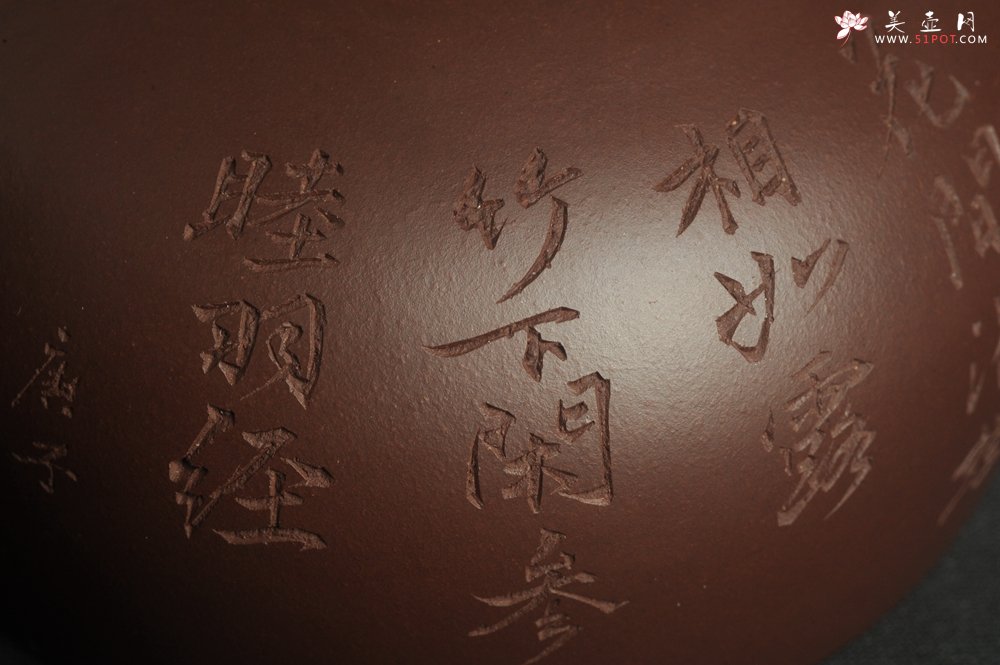 美壶网
WWW.51POT.COM
花間
相如露
竹下閑参
睦羽经